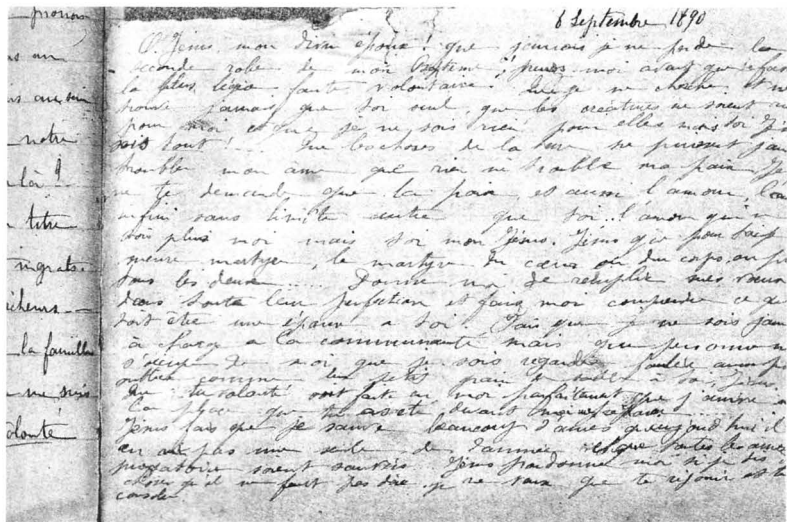 pronon
8 Septembre 1890
O Jésus mon divin époux! que jamais je ne perde la
us un
seconde robe de mon Baptême, prends moi avant que je fasse
la plus légère faute volontaire. Que je ne cherche et ne
us au sein
trouve jamais que toi seul, que les créatures ne soient
pour moi et que je ne sois rien pour elles mais toi Jés
notre
sois tout!... Que les choses de la terre ne puissent jam
troubler mon âme que rien ne trouble ma paix Jé
là?
ne te demande que la paix, et aussi l'amour, l'am
infini sans limite autre que toi.. l'amour qui n
titre
sois plus moi mais toi mon Jésus. Jésus que pour toi je
meure martyre, le martyre du cœur ou du corps, ou
ingrats
tous les deux.... Donne moi de remplir mes vœux
dans toute leur perfection et fais moi comprendre ce
cheurs
doit être une épouse à toi. Fais que je ne sois jam
à charge à la communauté mais que personne
la famille
s'occupe de moi que je sois regardée foulée aux
oubliée comme un petit grain de sable à toi, Jésus.
me suis
Que ta volonté soit faite en moi parfaitement que j'arrive
la place que
devant
olonté
Jésus fais que je sauve beaucoup d'âmes qu'aujourd'hui il
en ait pas une seule de damnée et que toutes les âmes
purgatoire soient sauvées Jésus pardonne moi si je dis
choses qu'il ne faut pas dire je ne veux que te réjouir et te
consoler